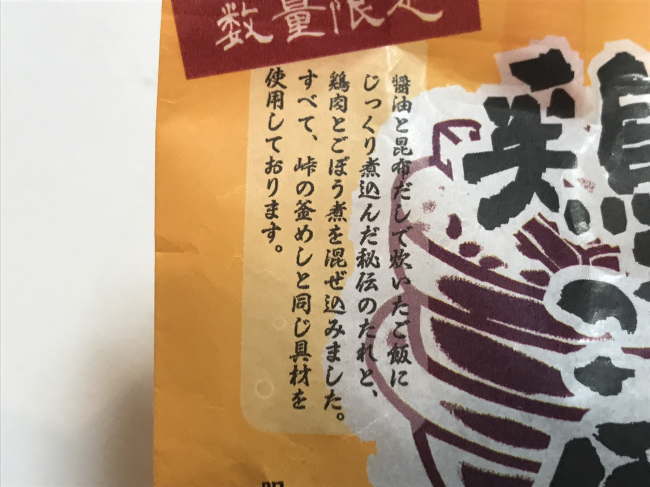 数量限定
醤油と昆布だしで炊いたご飯に
じっくり煮込んだ秘伝のたれと、
鶏肉とごぼう煮を混ぜ込みました。
すべて、峠の釜めしと同じ具材を
使用しております。